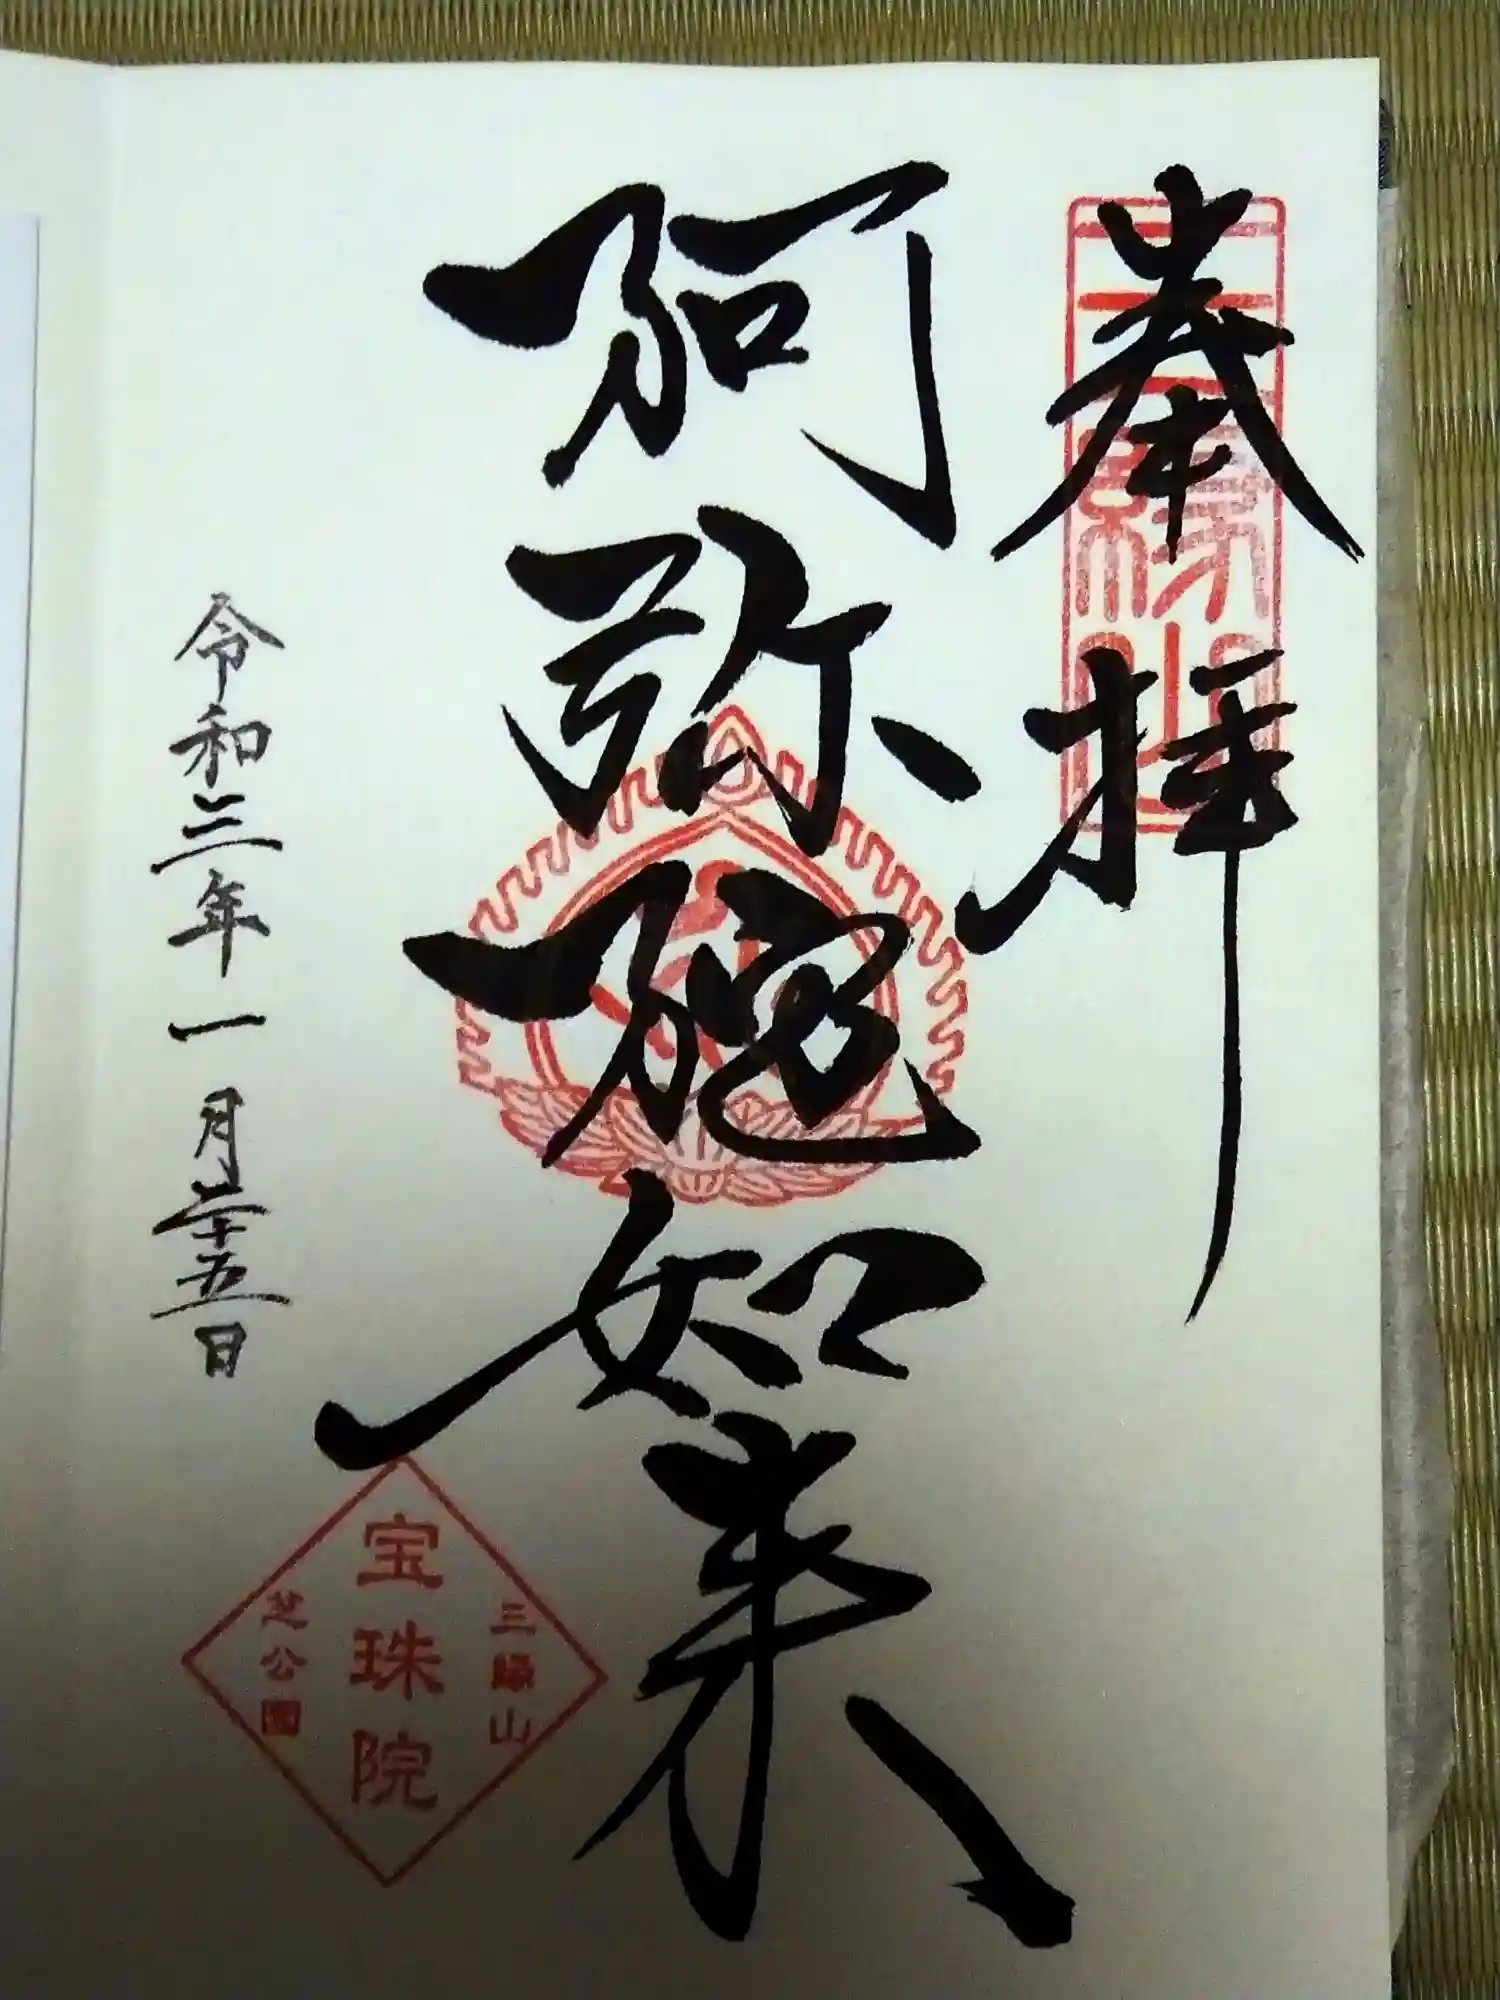 奉拝
三縁山
阿弥陀如来
令和三年一月二十五日
三縁山
宝珠院
芝公園